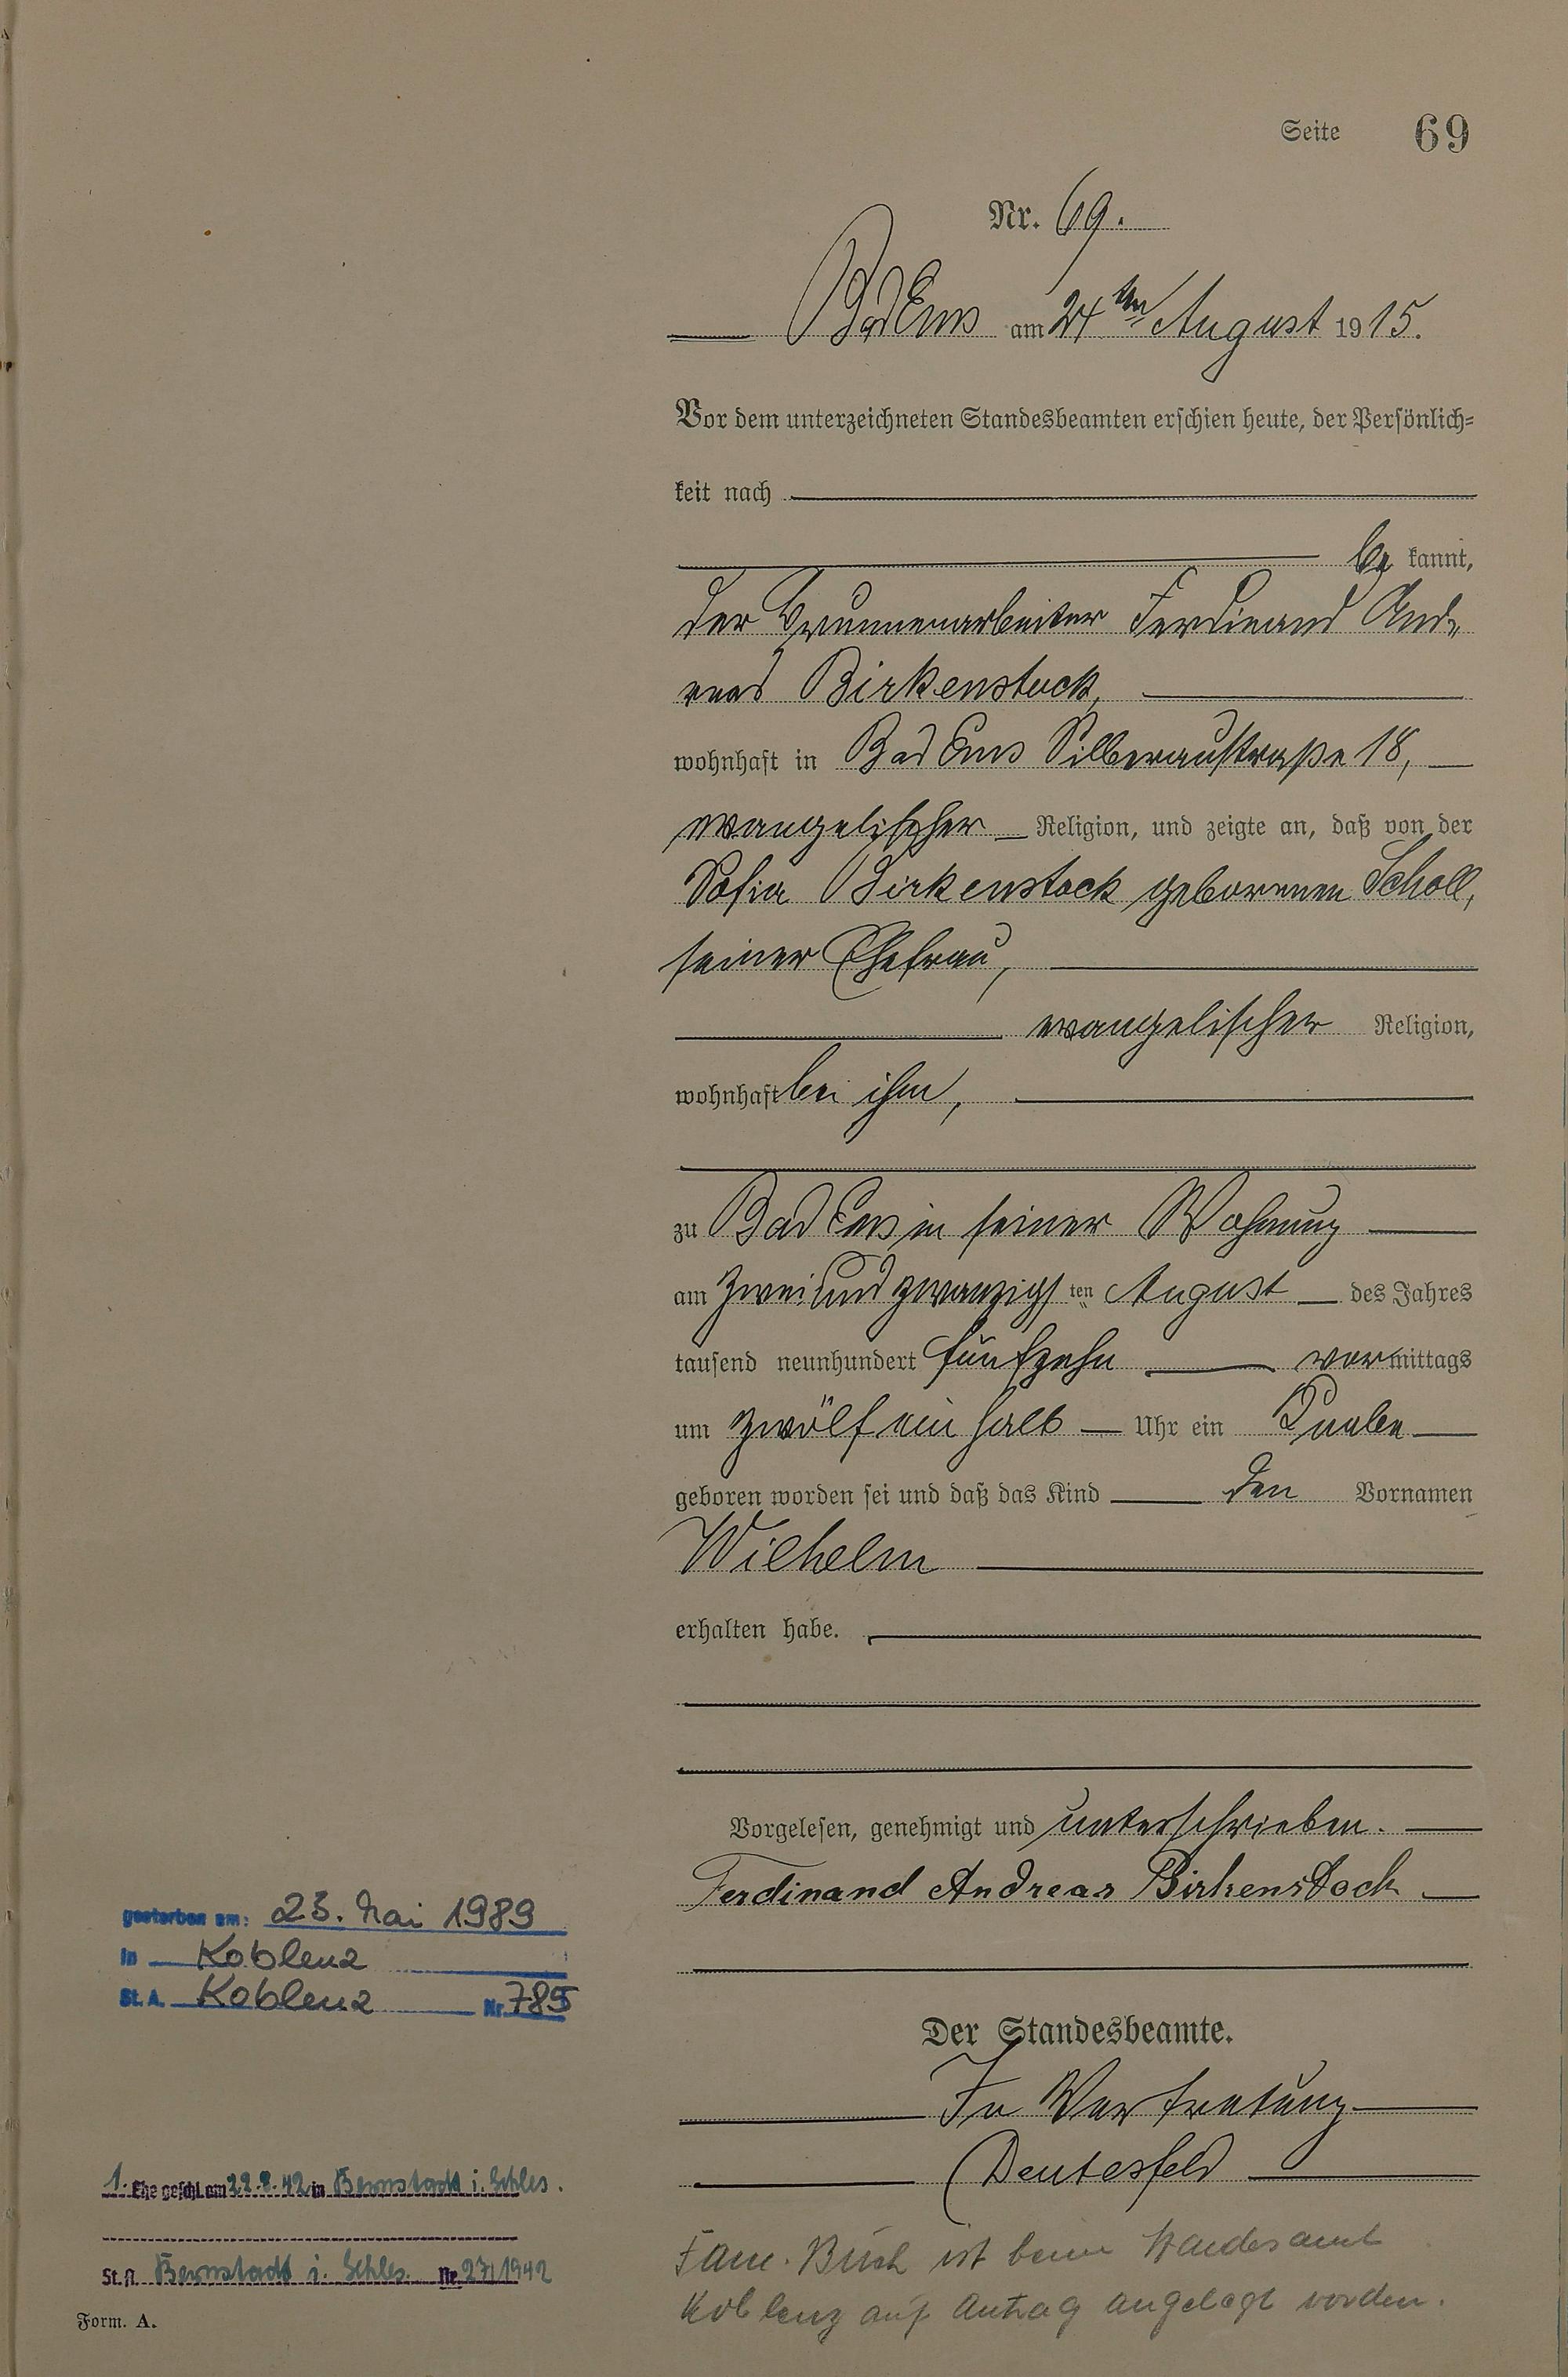 Seite 69
Nr. 69.
Bad Ems am 24ten August 1915.
Vor dem unterzeichneten Standesbeamten erschien heute, der Persönlich=
keit nach
be kannt,
der Brunnenarbeiter Ferdinand And=
reas Birkenstock,
wohnhaft in Bad Ems Silberaustraße 18,
evangelischer Religion, und zeigte an, daß von der
Sofia Birkenstock geborenen Scholl,
seiner Ehefrau,
evangelischer Religion,
wohnhaft bei ihm,
zu Bad Ems in seiner Wohnung
am zweiundzwanzigsten August des Jahres
tausend neunhundert fünfzehn vormittags
um zwölf ein halb Uhr ein Knabe
geboren worden sei und daß das Kind den Vornamen
Wilhelm
erhalten habe.
Vorgelesen, genehmigt und unterschrieben.
Ferdinand Andreas Birkenstock
Der Standesbeamte.
In Vertretung
Deutesfeld
Fam. Buch ist beim Standesamt
Koblenz auf Antrag angelegt worden.
gestorben am: 23. Mai 1989
in Koblenz
St. A. Koblenz Nr. 785
1. Ehe geschl. am 22.8.42 in Bernstadt i. Schles.
St. A. Bernstadt i. Schles. Nr. 27/1942
Form. A.